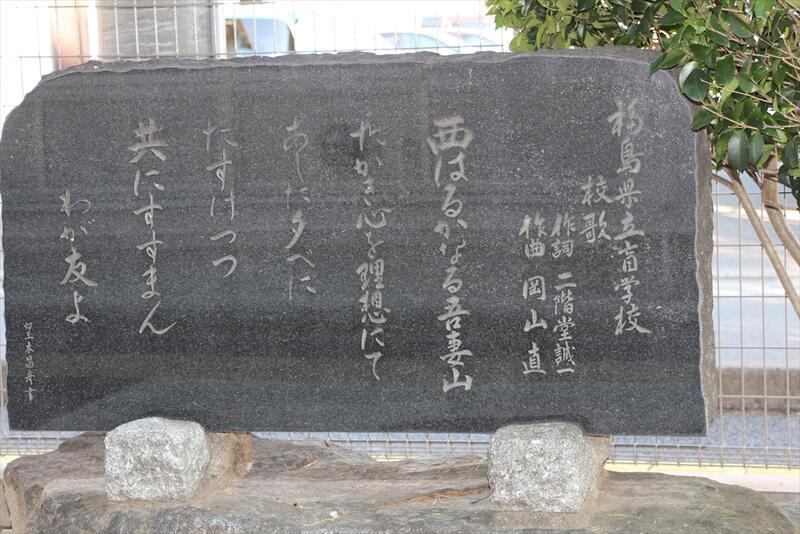 福島県立盲学校
校歌
作詞 二階堂誠一
作曲 岡山直
西はるかなる吾妻山
たかき心を理想にて
あした夕べに
たすけつつ
共にすすまん
わが友よ